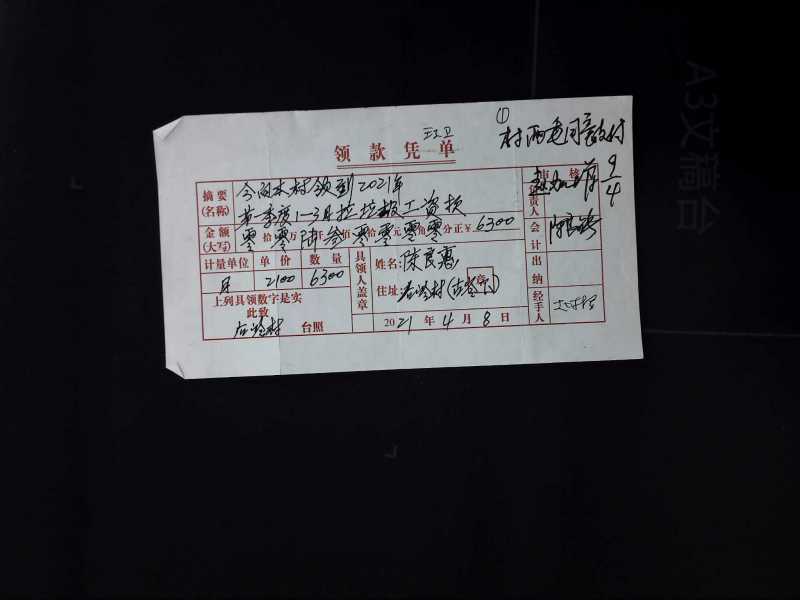 ①
村两委同意支付
领款凭单
审核
9/4
摘要
(名称)
今向本村领到2021年
第一季度1-3月垃圾工资款
负责人
金额
(大写)
零拾零万陆仟叁佰零拾零元零角零分正¥6300
会计
计量单位 单价 数量
月 2100 6300
具领人盖章
姓名:陈良惠
住址:
章
出纳
上列具领数字是实
此致
台照
2021年4月8日
经手人
A3文稿台